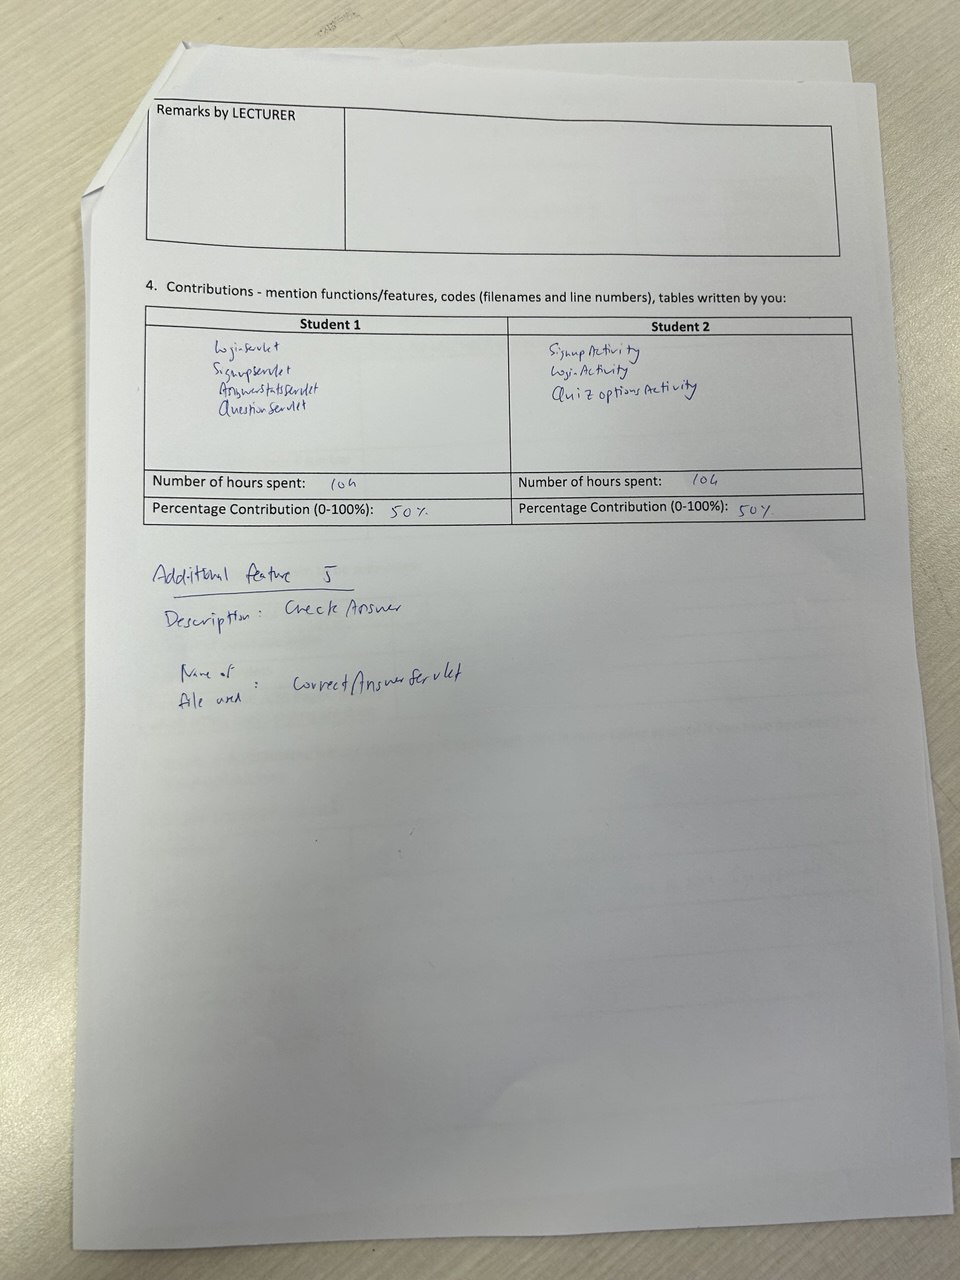 Remarks by LECTURER
4. Contributions - mention functions/features, codes (filenames and line numbers), tables written by you:
Student 1
LoginServlet
SignupServlet
AnswerstatsServlet
QuestionServlet
Student 2
SignupActivity
LoginActivity
Quiz optionsActivity
Number of hours spent: 10h
Number of hours spent: 10h
Percentage Contribution (0-100%): 50%
Percentage Contribution (0-100%): 50%
Additional feature 5
Description: Check Answer
Name of
file used : CorrectAnswerServlet